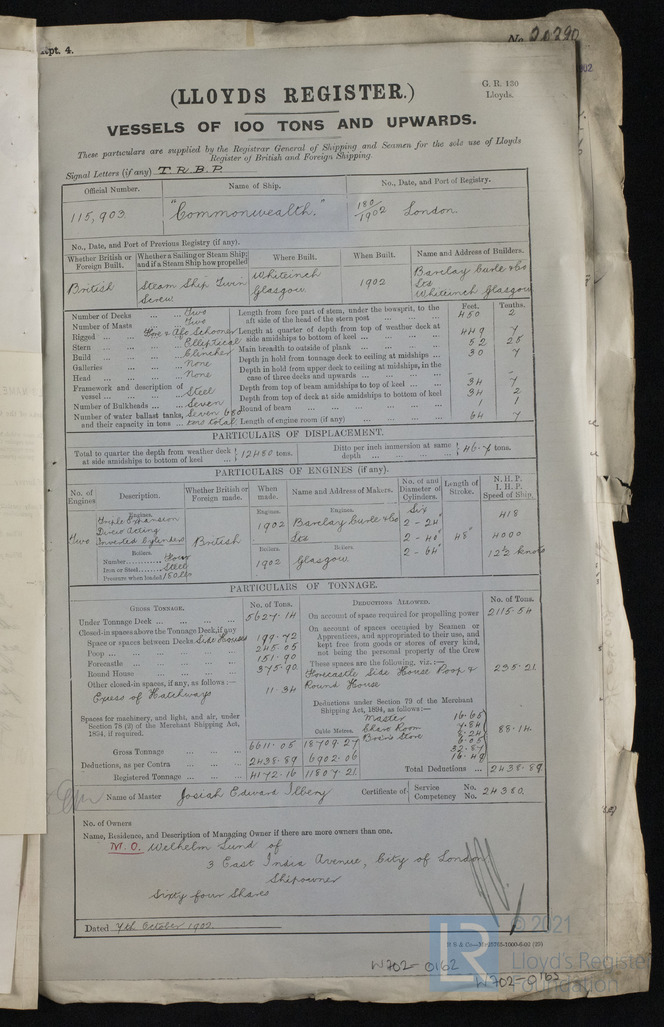 Rpt. 4.
No. 20390
(LLOYDS REGISTER.)
G. R. 130
Lloyds.
VESSELS OF 100 TONS AND UPWARDS.
These particulars are supplied by the Registrar General of Shipping and Seamen for the sole use of Lloyds
Register of British and Foreign Shipping.
Signal Letters (if any) T. R. B. P.
Official Number. Name of Ship. No., Date, and Port of Registry.
115,903. "Commonwealth." 180/1902 London.
No., Date, and Port of Previous Registry (if any).
Whether British or Foreign Built. Whether a Sailing or Steam Ship; and if a Steam Ship how propelled Where Built. When Built. Name and Address of Builders.
British Steam Ship Twin Screw Whiteinch Glasgow 1902 Barclay Curle & Co Ltd Whiteinch Glasgow
Feet. Tenths.
Number of Decks ... Two
Number of Masts ... Two
Rigged ... Fore & Aft Schooner
Stern ... Elliptical
Build ... Clincher
Galleries ... None
Head ... None
Framework and description of vessel ... Steel
Number of Bulkheads ... Seven
Number of water ballast tanks, and their capacity in tons ... Seven 680 tons total
Length from fore part of stem, under the bowsprit, to the aft side of the head of the stern post 450 2
Length at quarter of depth from top of weather deck at side amidships to bottom of keel ... 449 7
Main breadth to outside of plank ... 52 25
Depth in hold from tonnage deck to ceiling at midships ... 30 7
Depth in hold from upper deck to ceiling at midships, in the case of three decks and upwards ... - -
Depth from top of beam amidships to top of keel ... 34 7
Depth from top of deck at side amidships to bottom of keel 34 2
Round of beam ... 1 1
Length of engine room (if any) ... 64 7
PARTICULARS OF DISPLACEMENT.
Total to quarter the depth from weather deck at side amidships to bottom of keel ... 12480 tons. Ditto per inch immersion at same depth ... 46.7 tons.
PARTICULARS OF ENGINES (if any).
No. of Engines Description. Whether British or Foreign made. When made. Name and Address of Makers. No. of and Diameter of Cylinders. Length of Stroke. N. H. P. I. H. P. Speed of Ship.
Two
Engines.
Triple Expansion
Direct Acting
Inverted Cylinders
Boilers.
Number Four
Iron or Steel Steel
Pressure when loaded 180 lbs
British
Engines. 1902
Boilers. 1902
Engines.
Barclay Curle & Co
Ltd
Boilers.
Glasgow
Six
2 - 24"
2 - 40"
2 - 64"
48"
418
4000
12½ knots
PARTICULARS OF TONNAGE.
GROSS TONNAGE. No. of Tons.
Under Tonnage Deck ... 5627.14
Closed-in spaces above the Tonnage Deck, if any
Space or spaces between Decks Side Houses 199.72
Poop ... 245.05
Forecastle ... 151.90
Round House ... 375.90
Other closed-in spaces, if any, as follows:—
Excess of Hatchways 11.34
Spaces for machinery, and light, and air, under Section 78 (2) of the Merchant Shipping Act, 1894, if required.
Cubic Metres.
Gross Tonnage ... 6611.05 18709.27
Deductions, as per Contra ... 2438.89 6902.06
Registered Tonnage ... 4172.16 11807.21
DEDUCTIONS ALLOWED. No. of Tons.
On account of space required for propelling power 2115.54
On account of spaces occupied by Seamen or Apprentices, and appropriated to their use, and kept free from goods or stores of every kind, not being the personal property of the Crew
These spaces are the following, viz.:—
Forecastle Side House Poop & Round House 235.21
Deductions under Section 79 of the Merchant Shipping Act, 1894, as follows:—
Master 16.65
Chart Room 7.84
Bosn's Store 8.24
6.05
32.87
16.49
88.14
Total Deductions ... 2438.89
Name of Master Josiah Edward Ilbery Certificate of Service No. Competency No. 24380
No. of Owners
Name, Residence, and Description of Managing Owner if there are more owners than one.
M. O. Wilhelm Lund of
3 East India Avenue, City of London
Shipowner
Sixty four Shares
Dated 7th October 1902.
© 2021
LR
Lloyd's Register
Foundation
W702-0162
W702-0163